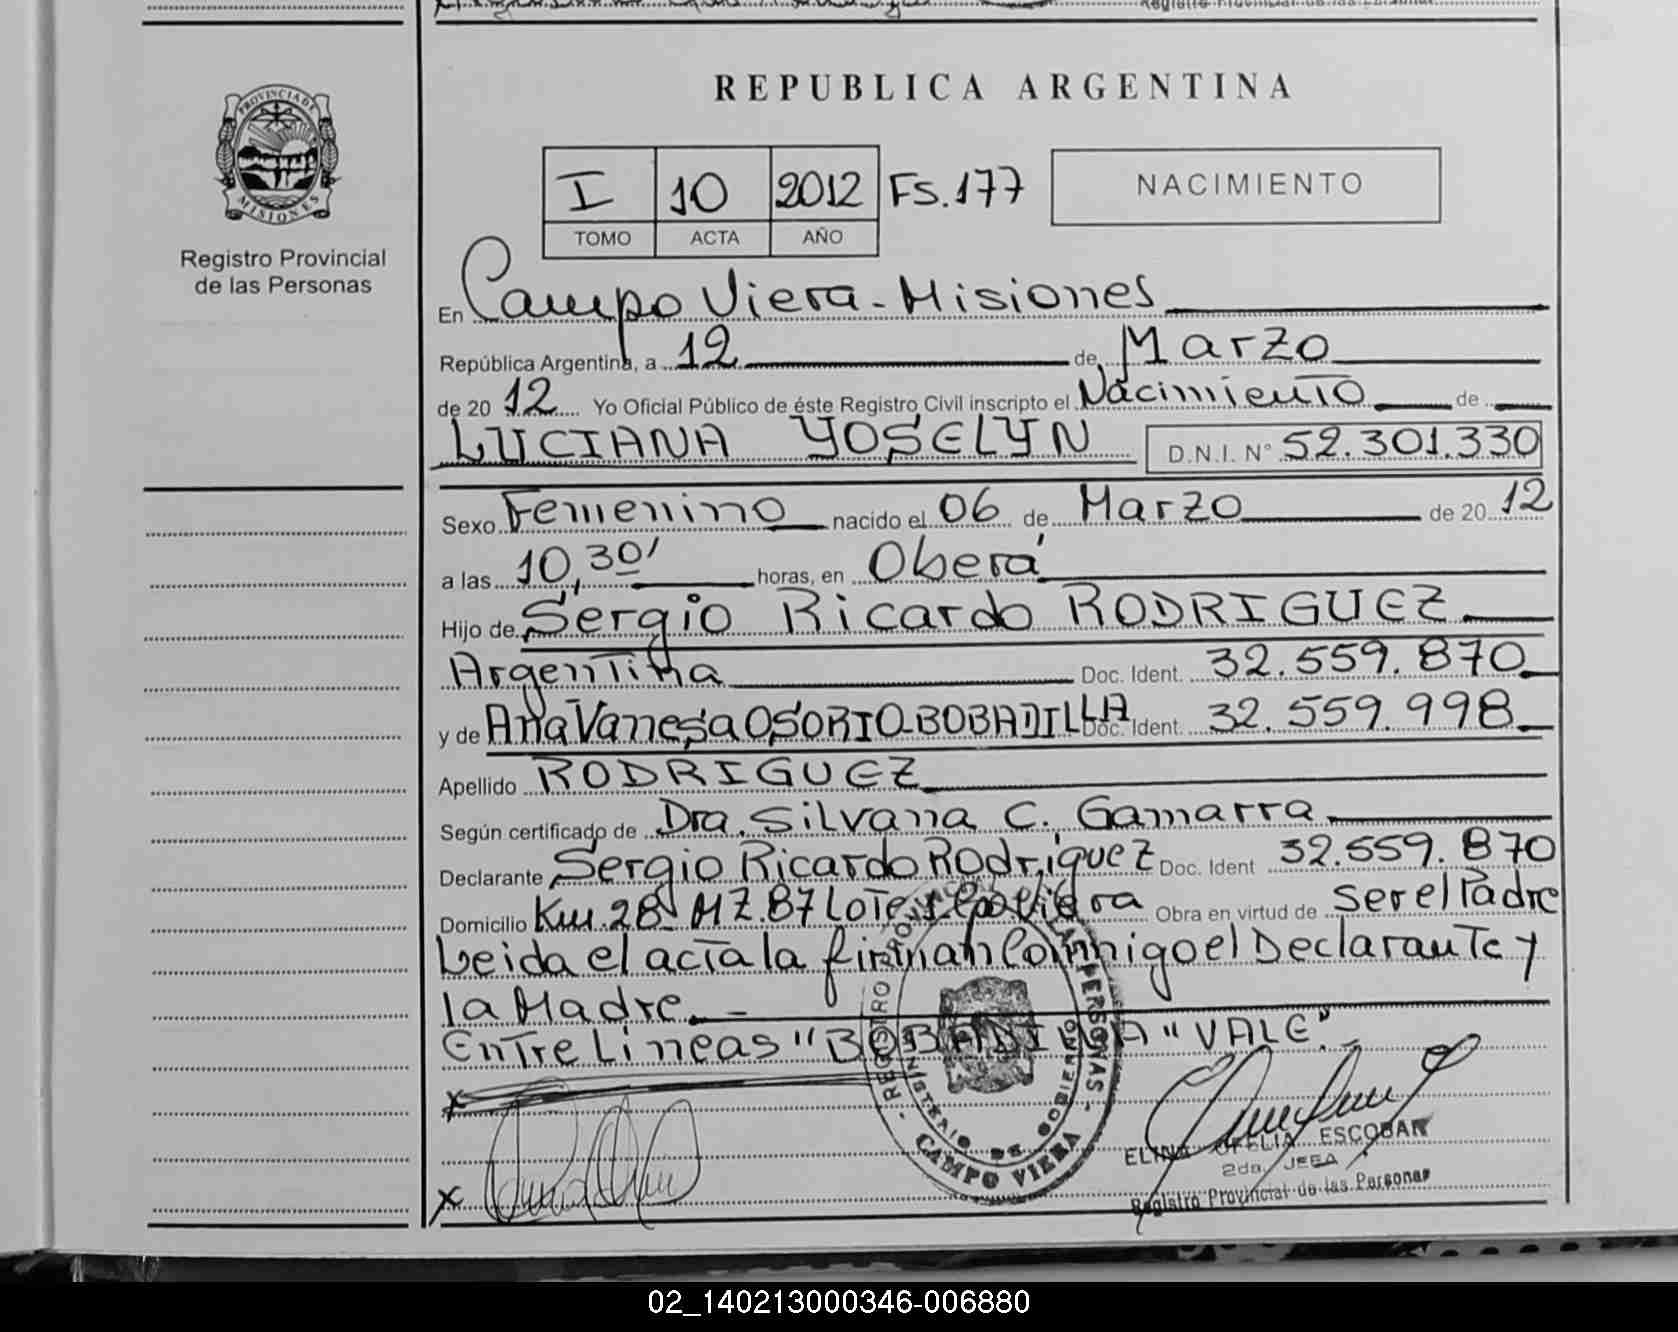 REPUBLICA ARGENTINA
PROVINCIA DE
MISIONES
Registro Provincial
de las Personas
I 10 2012 FS.177
TOMO ACTA AÑO
NACIMIENTO
En Campo Viera - Misiones
República Argentina, a 12 de Marzo
de 20 12 Yo Oficial Público de éste Registro Civil inscripto el Nacimiento de
LUCIANA YOSELYN D.N.I. N° 52.301.330
Sexo Femenino nacido el 06 de Marzo de 20 12
a las 10,30' horas, en Oberá
Hijo de Sergio Ricardo RODRIGUEZ
Argentina Doc. Ident. 32.559.870
y de Ana Vanesa OSORIO-BOBADILLA Doc. Ident. 32.559.998
Apellido RODRIGUEZ
Según certificado de Dra. Silvana C. Gamarra
Declarante Sergio Ricardo Rodriguez Doc. Ident 32.559.870
Domicilio Km.28 MZ.87 Lote Obra en virtud de ser el Padre
Leida el acta la firman Conmigo el Declarante y
la Madre. -
Entre Lineas "BOBADILLA" VALE".-
REGISTRO PROVINCIAL DE LAS PERSONAS
MINISTERIO DE GOBIERNO
CAMPO VIERA
x
x
ELINA OFELIA ESCOBAR
2da. JEFA
Registro Provincial de las Personas
02_140213000346-006880